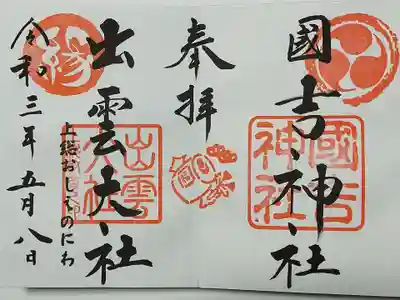 國吉神社
奉拝
出雲大社
上総おしどのにわ
令和三年五月八日
縁
國吉神社